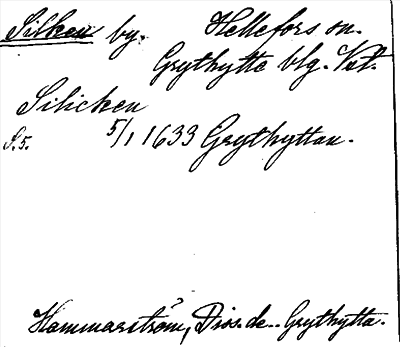 Silken by. Hellefors sn.
Grythytte blg. Vstm.
Silicken
S.5. 5/1 1633 Grythyttan.
Hammarström, Dios.de.. Grythytta.